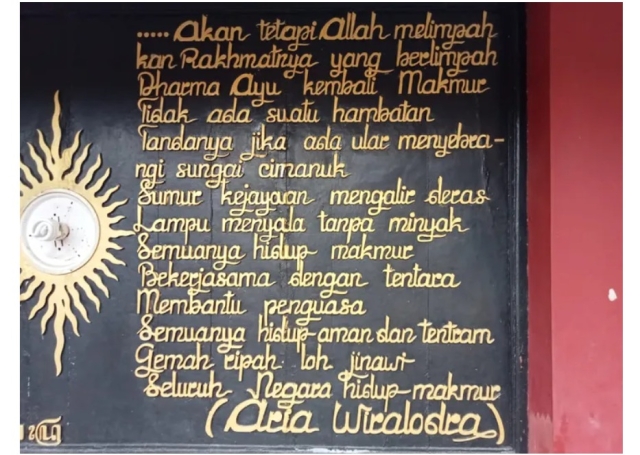 ..... Akan tetapi Allah melimpah
kan Rakhmatnya yang berlimpah
Dharma Ayu kembali Makmur
Tidak ada suatu hambatan
Tandanya jika ada ular menyebra-
ngi sungai cimanuk
Sumur kejayaan mengalir deras
Lampu menyala tanpa minyak
Semuanya hidup makmur
Bekerjasama dengan tentara
Membantu penguasa
Semuanya hidup aman dan tentram
Gemah ripah loh jinawi
Seluruh Negara hidup makmur
(Aria Wiralodra)